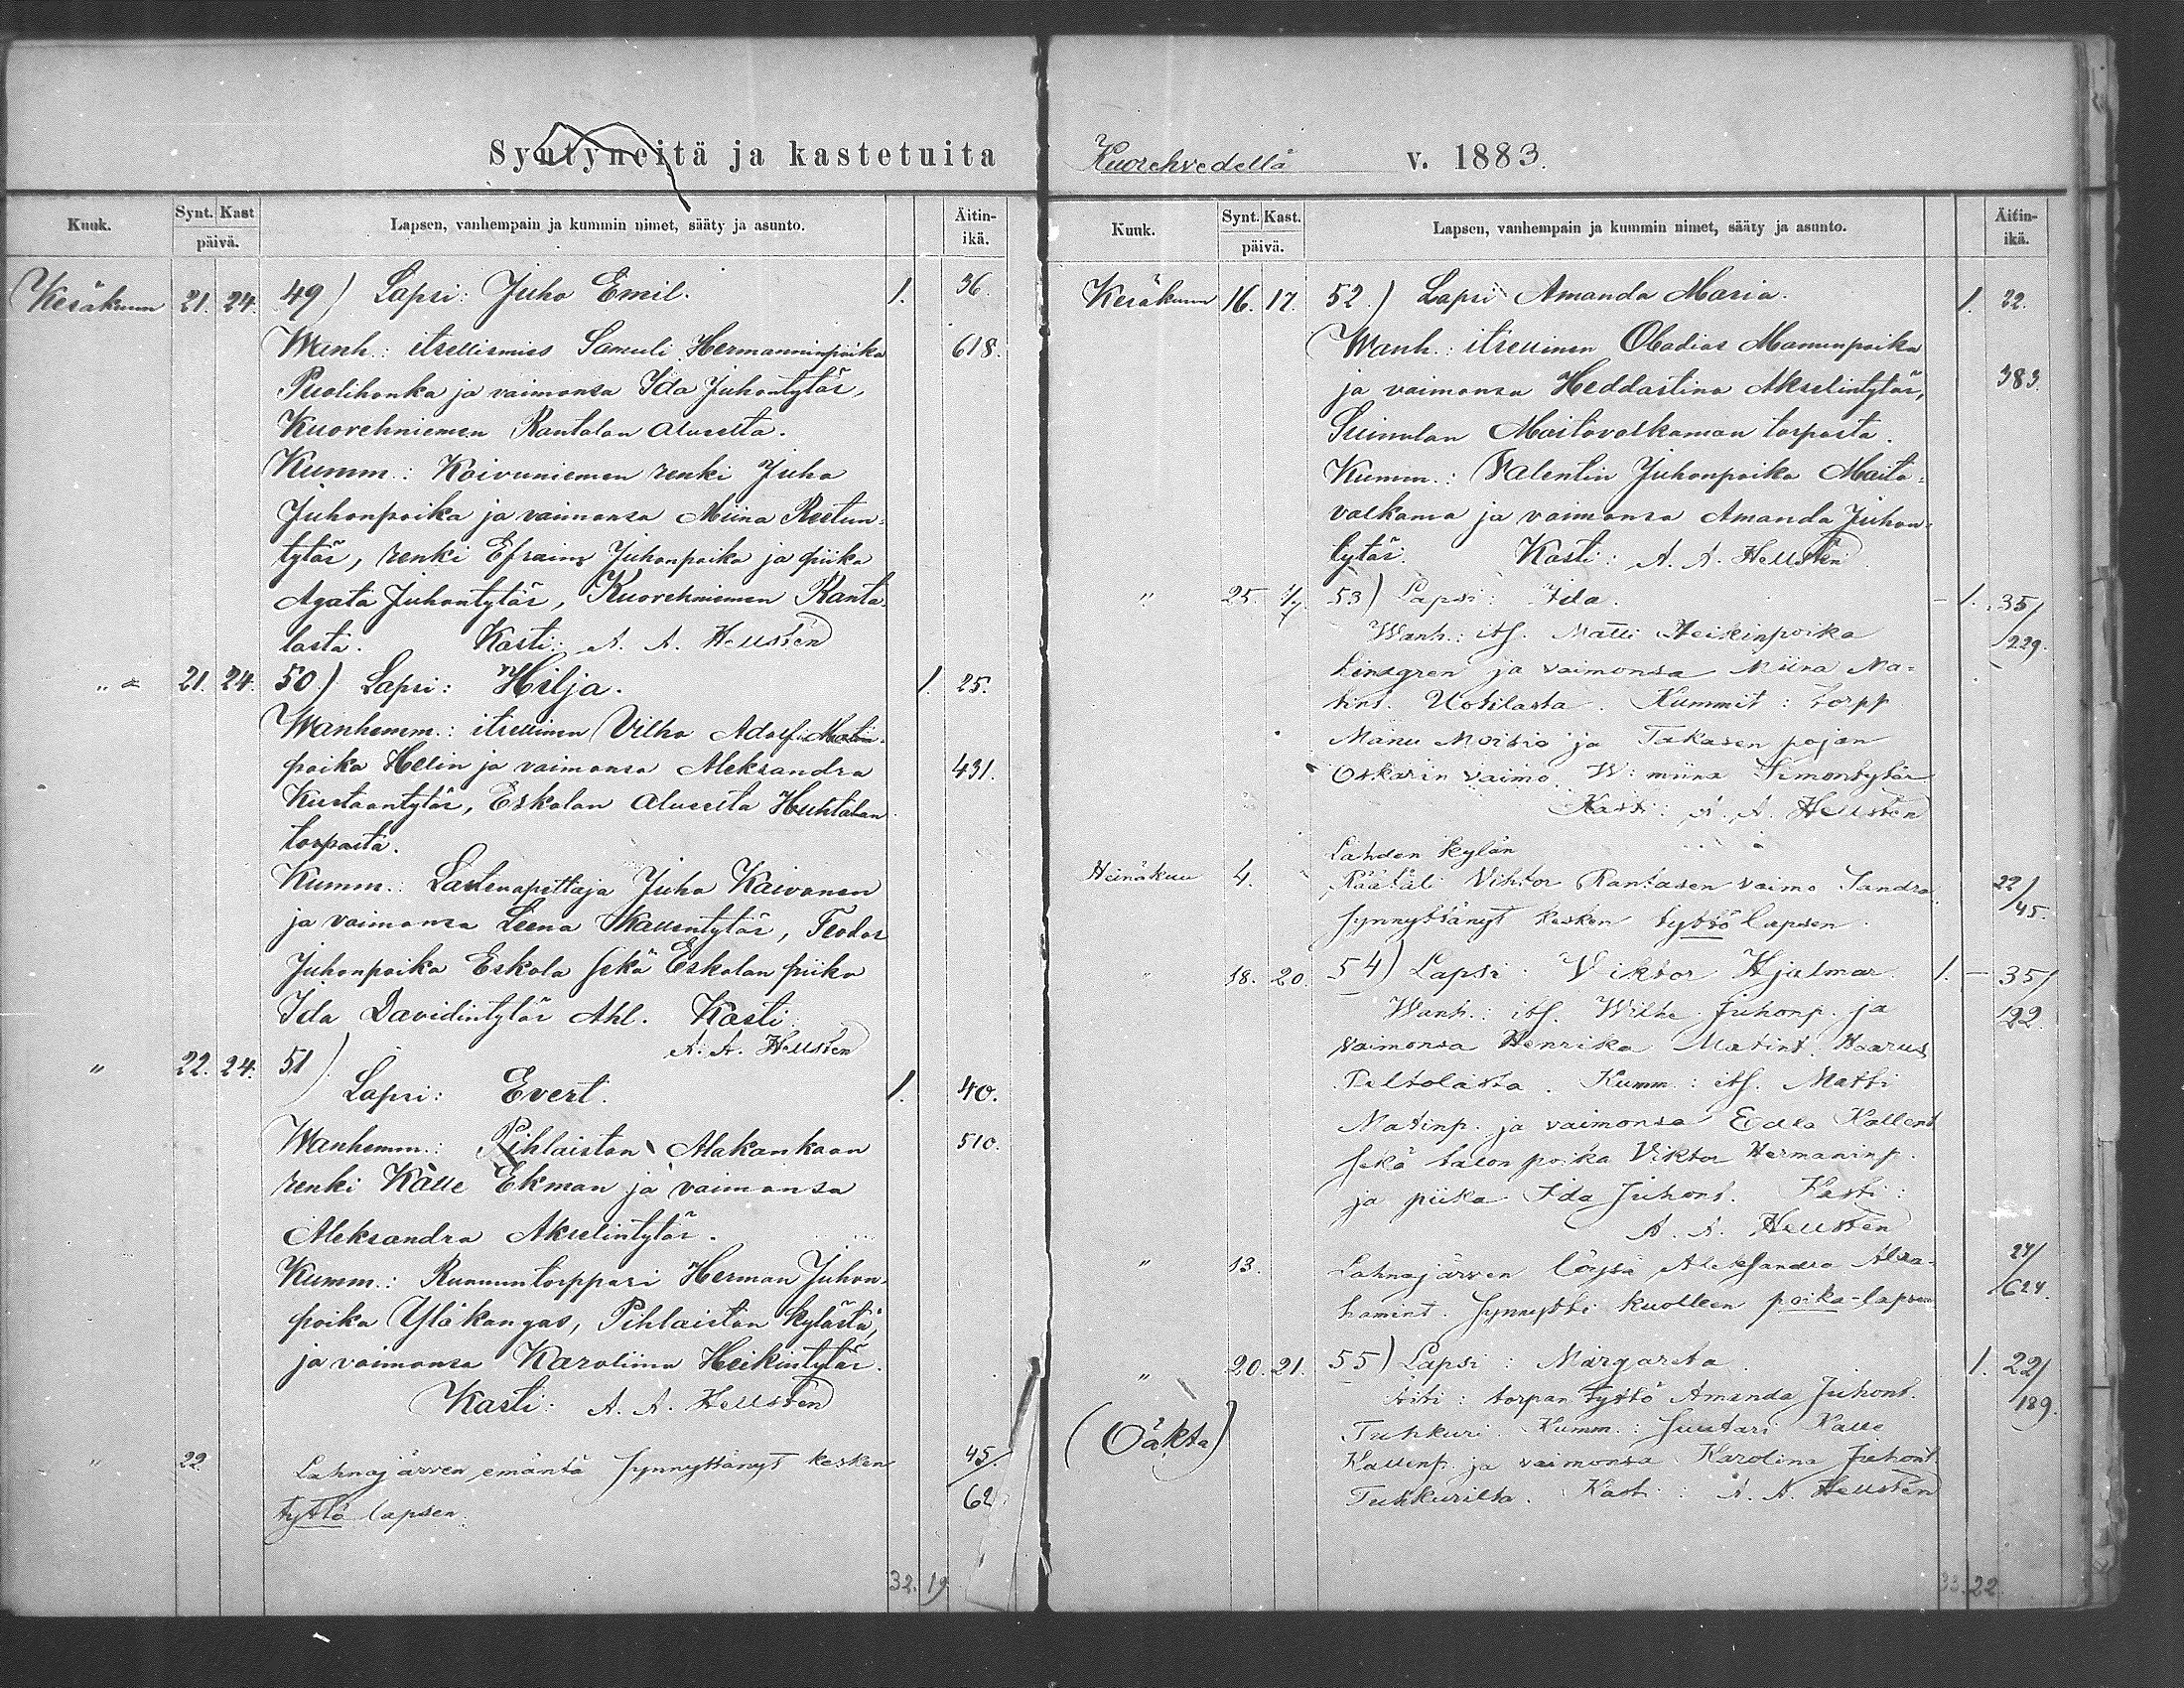 Syntyneitä ja kastetuita
Kuuk. Synt. Kast päivä. Lapsen, vanhempain ja kummin nimet, sääty ja asunto. Äitin-ikä.
Kesäkuun 21. 24. 49) Lapsi: Juho Emil. 1. 36.
Wanh.: itsellismies Samuli Hermanninpoika 618.
Puolihonka ja vaimonsa Ida Juhontytär,
Kuorehniemen Rantalan alueelta.
Kumm.: Koivuniemen renki Juho
Juhonpoika ja vaimonsa Miina Reetun-
tytär, renki Efraim Juhonpoika ja piika
Agata Juhontytär, Kuorehniemen Ranta-
lasta. Kasti: A. A. Hellstén
„ 21. 24. 50) Lapsi: Hilja. 1. 25.
Wanhemm.: itsellinen Vilho Adolf Matin-
poika Helin ja vaimonsa Aleksandra 431.
Kustaantytär, Eskolan alueelta Huhtalan
torpasta.
Kumm.: Lastenopettaja Juho Kaivonen
ja vaimonsa Leena Kallentytär, Teodor
Juhonpoika Eskola sekä Eskolan piika
Ida Davidintytär Ahl. Kasti:
A. A. Hellstén
„ 22. 24. 51)
Lapsi: Evert. 1. 40.
Wanhemm.: Pihlaiston Alakankaan 510.
renki Kalle Ekman ja vaimonsa
Aleksandra Akselintytär.
Kumm.: Ruununtorppari Herman Juhon-
poika Yläkangas, Pihlaiston kylästä,
ja vaimonsa Karoliina Heikintytär.
Kasti: A. A. Hellstén
„ 22. Lahnajärven emäntä synnyttänyt kesken 45/
tyttö lapsen. 62.
32. 19
Kuorehvedellä v. 1883.
Kuuk. Synt. Kast. päivä. Lapsen, vanhempain ja kummin nimet, sääty ja asunto. Äitin-ikä.
Kesäkuun 16. 17. 52.) Lapsi Amanda Maria. 1. 22.
Wanh.: itsellinen Obadias Manunpoika
ja vaimonsa Heddastina Akselintytär, 383.
Suinulan Maitovalkaman torpasta.
Kumm.: Valentin Juhonpoika Maito-
valkama ja vaimonsa Amanda Juhon-
tytär. Kasti: A. A. Hellstén
„ 25. 1/7 53) Lapsi: Ida. – 1. 35/
Wanh.: its. Matti Heikinpoika 229.
Lindgren ja vaimonsa Miina Ma-
tint. Uotilasta. Kummit: torpp
Manu Moisio ja Takasen pojan
Oskarin vaimo W: miina Simontytär
Kasti: A. A. Hellstén
Lahden kylän
Heinäkuu 4. Räätäli Vihtor Rantasen vaimo Sandra 22/
synnyttänyt kesken tyttö lapsen. 45.
„ 18. 20. 54) Lapsi: Viktor Hjalmar. 1. – 35/
Wanh.: its. Wilhe Juhonp. ja 122.
vaimonsa Henrika Matint. Haarus
Peltolasta. Kumm.: its. Matti
Matinp. ja vaimonsa Edla Kallent
sekä talon poika Viktor Hermaninp.
ja piika Ida Juhont. Kasti:
A. A. Hellstén
„ 13. Lahnajärven löysä Aleksandra Abra- 24/
hamint. synnytti kuolleen poika-lapsen 624.
„ 20. 21. 55) Lapsi: Margareta 1. 22/
Äiti: torpan tyttö Amanda Juhont. 189.
(Oäkta) Tuhkuri. Kumm.: Suutari Kalle
Kallenp. ja vaimonsa Karolina Juhont
Tuhkurilta. Kasti: A. A. Hellstén
33. 22